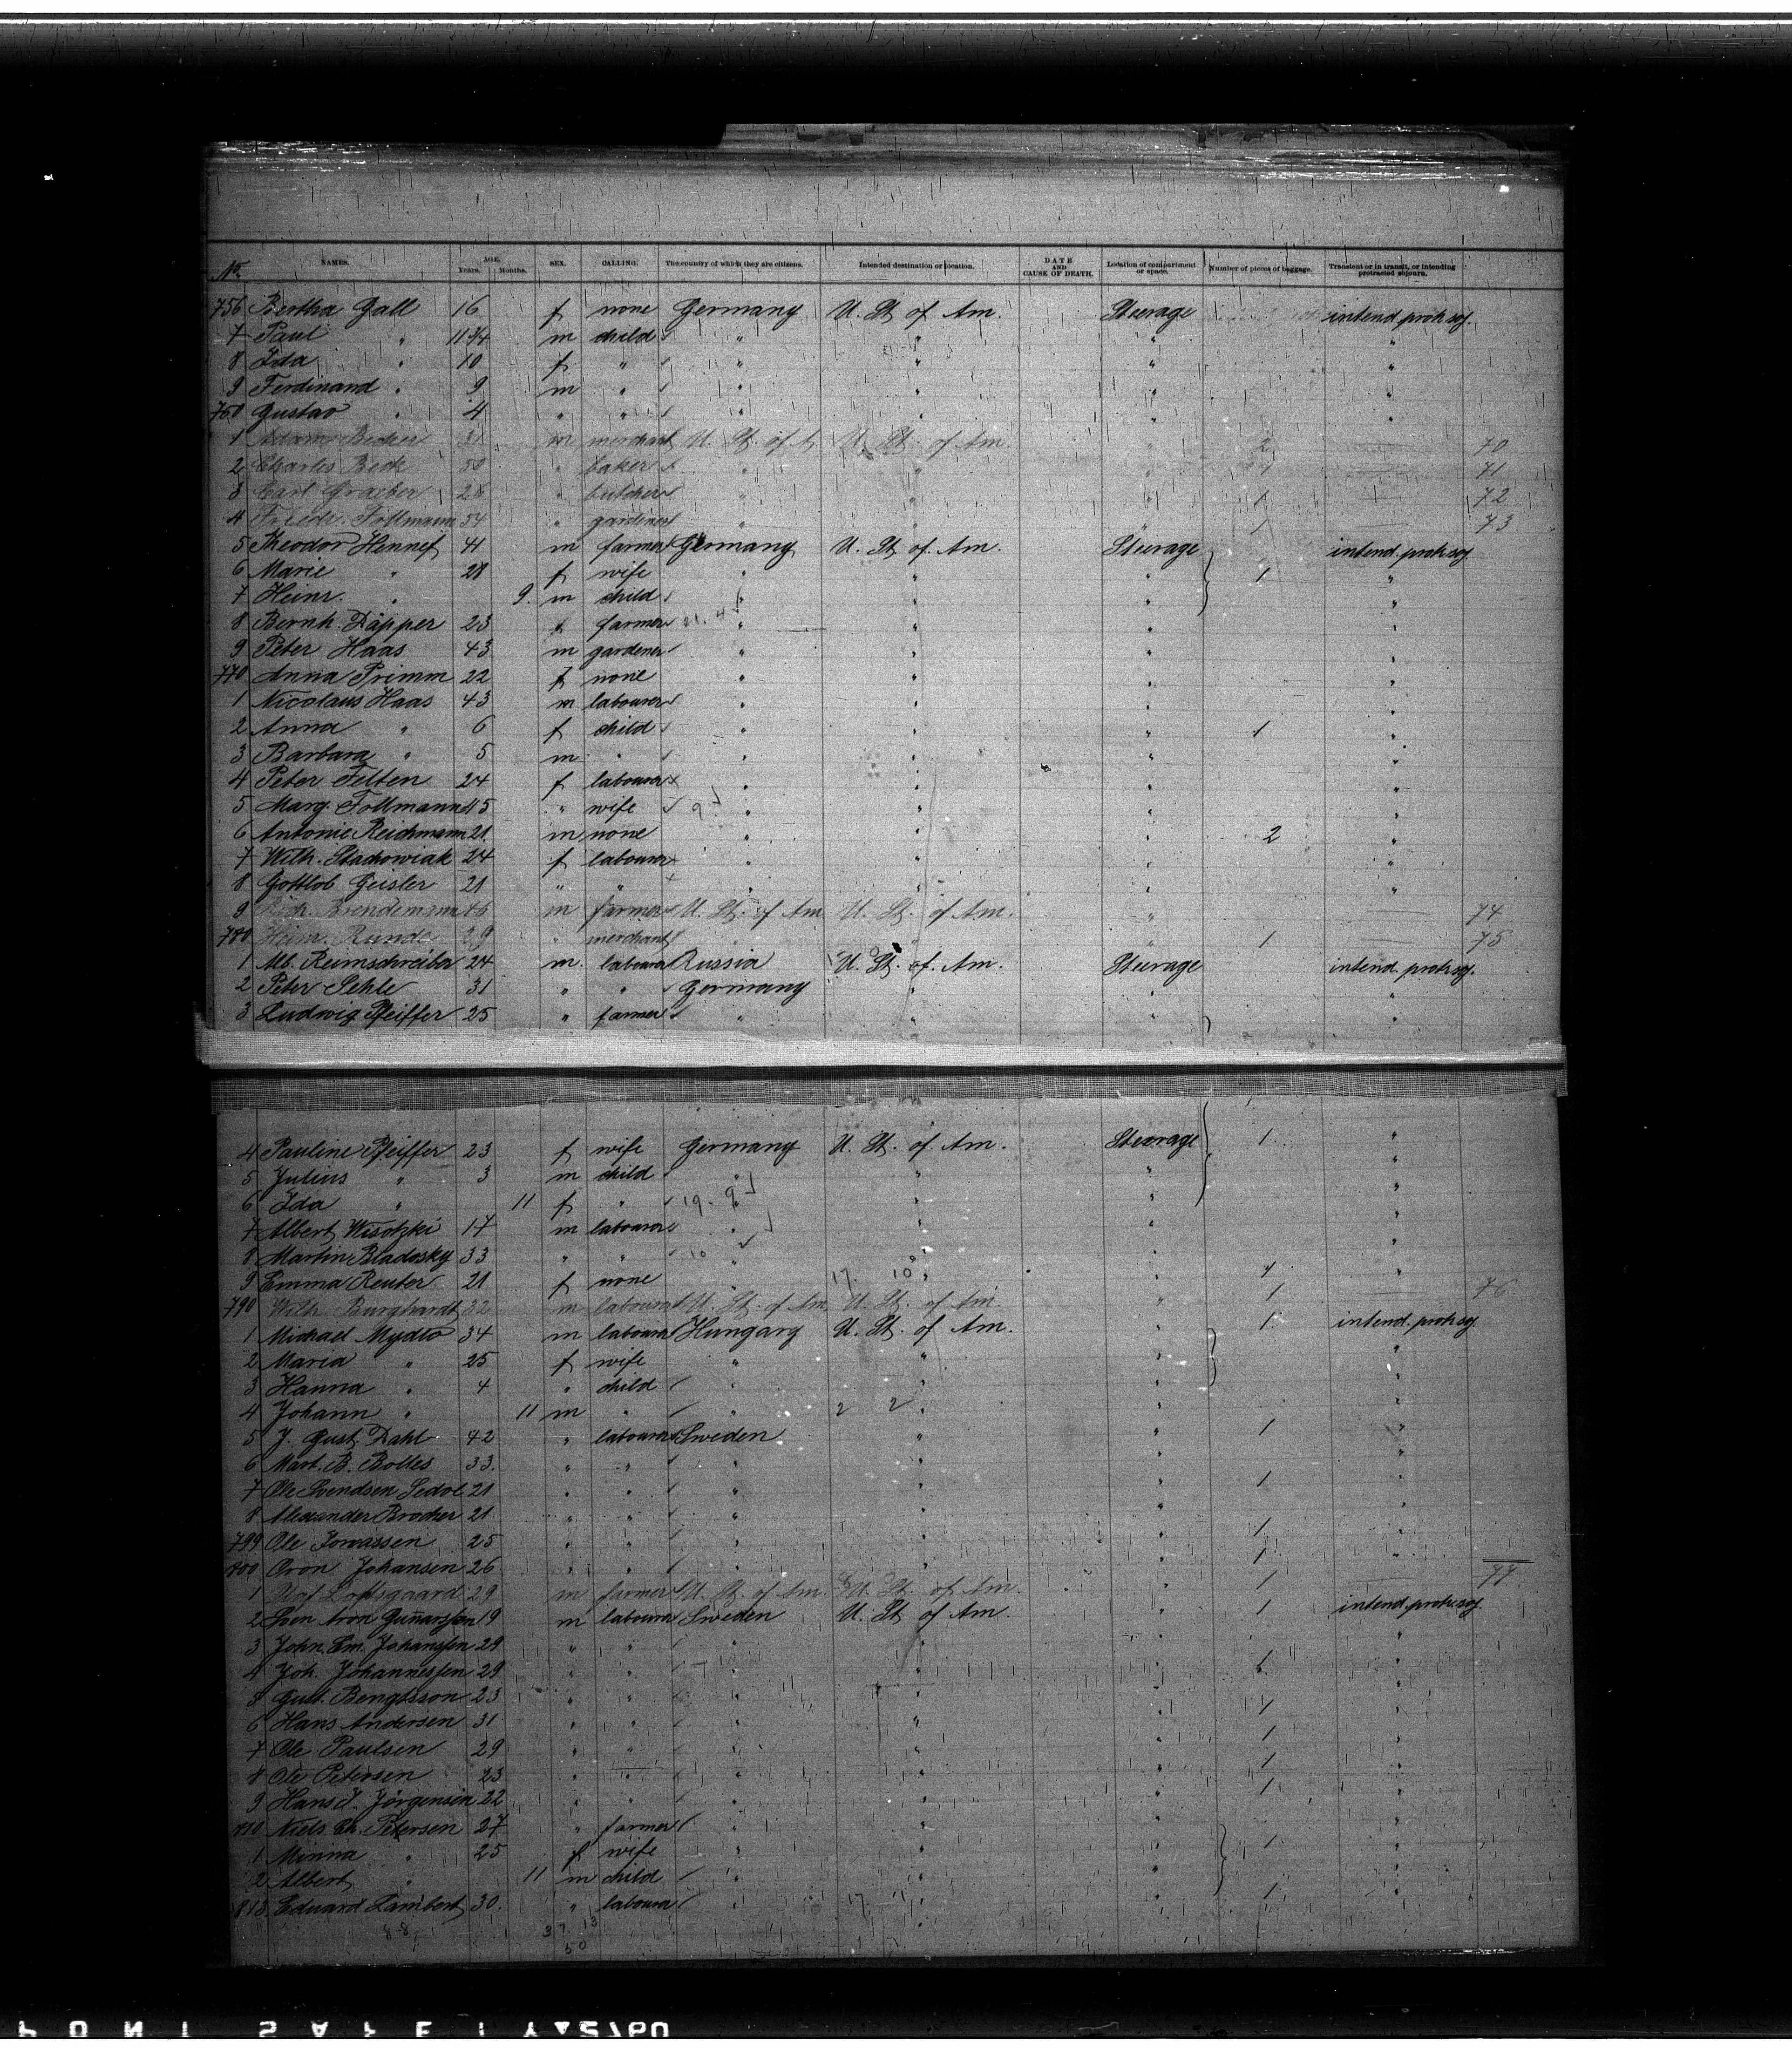 No. NAMES. AGE. Years. Months. SEX. CALLING. The country of which they are citizens. Intended destination or location. DATE AND CAUSE OF DEATH. Location of compartment or space. Number of pieces of baggage. Transient or in transit, or intending protracted sojourn.
756 Bertha Gall 16 f none Germany U. St. of Am. Steerage intend. protr. soj.
7 Paul " 11 3/4 m child " " " "
8 Ida " 10 f " " " " "
9 Ferdinand " 9 m " " " " "
760 Gustav " 4 " " " " " "
1 Adam Becker 31 m merchant U. St. of A. U. St. of Am. " 2 70
2 Charles Beck 50 " baker " " " 1 71
3 Carl Graeber 26 " butcher " " " 1 72
4 Friedr. Follmann 54 " gardiner " " " 1 73
5 Theodor Hennef 41 m farmer Germany U. St. of Am. Steerage intend. protr. soj.
6 Marie " 28 f wife " " " 1 "
7 Heinr. " 9 m child " " " "
8 Bernh. Däpper 23 " farmer " " " "
9 Peter Haas 43 m gardener " " " "
770 Anna Primm 22 f none " " " "
1 Nicolaus Haas 43 m labourer " " " "
2 Anna " 6 f child " " " 1 "
3 Barbara " 5 m " " " " "
4 Peter Felten 24 f labourer " " " "
5 Marg. Follmann 45 " wife 9 " " " "
6 Antonie Reichmann 21 m none " " " 2 "
7 Wilh. Stachowiak 24 f labourer " " " "
8 Gottlob Geisler 21 " " " " " "
9 Rich. Brendemann 46 m farmer U. St. of Am U. St. of Am. " 74
780 Heinr. Runde 29 " merchant " " " 1 75
1 Alb. Reimschreiber 24 m. labourer Russia U. St. of. Am. Steerage intend. protr. soj.
2 Peter Sehle 31 " " Germany " " "
3 Ludwig Pfeiffer 25 " farmer " " " "
4 Pauline Pfeiffer 23 f wife Germany U. St. of Am. Steerage 1 "
5 Julius " 3 m child " " " "
6 Ida " 11 f " 19 - 9 " " "
7 Albert Wisotzki 17 m labourer " " " "
8 Martin Bladosky 33 " " 10 " " "
9 Emma Reuter 21 f none " 17. 10 " " 1 "
790 Wilh. Burghardt 32 m labourer U. St. of Am. U. St. of Am. " 1 76
1 Michael Mydlo 34 m labourer Hungary U. St. of Am. " 1 intend. protr. soj.
2 Maria " 25 f wife " " " "
3 Hanna " 4 " child " " " "
4 Johann " 11 m " " 2 2 " " "
5 J. Gust. Dahl 42 " labourer Sweden " " 1 "
6 Mart. B. Boltes 33. " " " " " "
7 Ole Svendsen Sedol 21 " " " " " 1 "
8 Alexander Brocher 21 " " " " " "
799 Ole Jonassen 25 " " " " " 1 "
700 Oron Johansen 26 " " " " " 1 "
1 Olof Loftsgaard 29 m farmer U. St. of Am. U. St. of Am. " 1 77
2 Sven Aron Gunarssen 19 m labourer Sweden U. St. of Am. " 1 intend. protr. soj.
3 John Em. Johanssen 29 " " " " " "
4 Joh. Johannessen 29 " " " " " 1 "
5 Gust. Bengtsson 23 " " " " " "
6 Hans Andersen 31 " " " " " 1 "
7 Ole Paulsen 29 " " " " " 1 "
8 Ole Petersen 23 " " " " " 1 "
9 Hans J. Jörgensen 22 " " " " " 1 "
710 Niels Chr. Petersen 27 " farmer " " " "
1 Minna " 25 f wife " " " 1 "
2 Albert " 11 m child " " " "
813 Eduard Lambert 30. " labourer " 17 1 " " 1 "
88 37 13
50